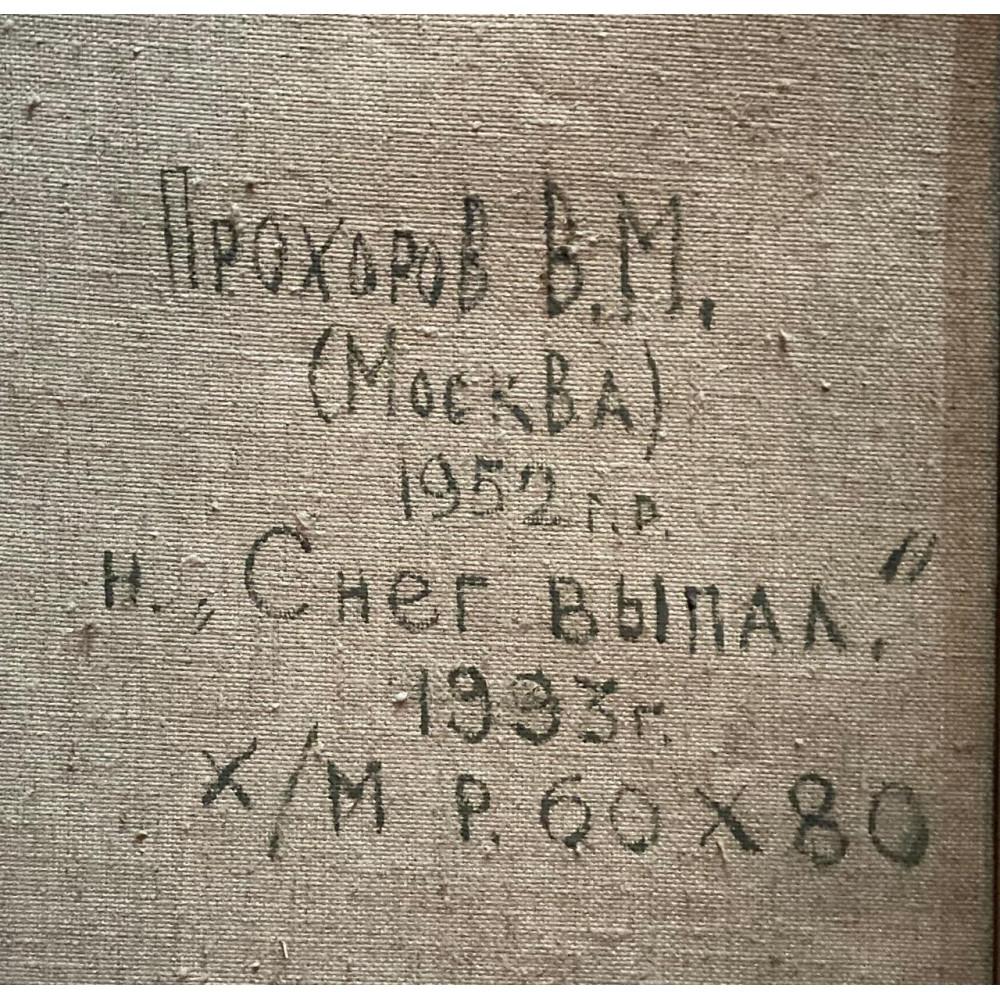 Прохоров В.М.
(Москва)
1952 г.р.
н. „Снег выпал."
1993г.
х/м р. 60 х 80